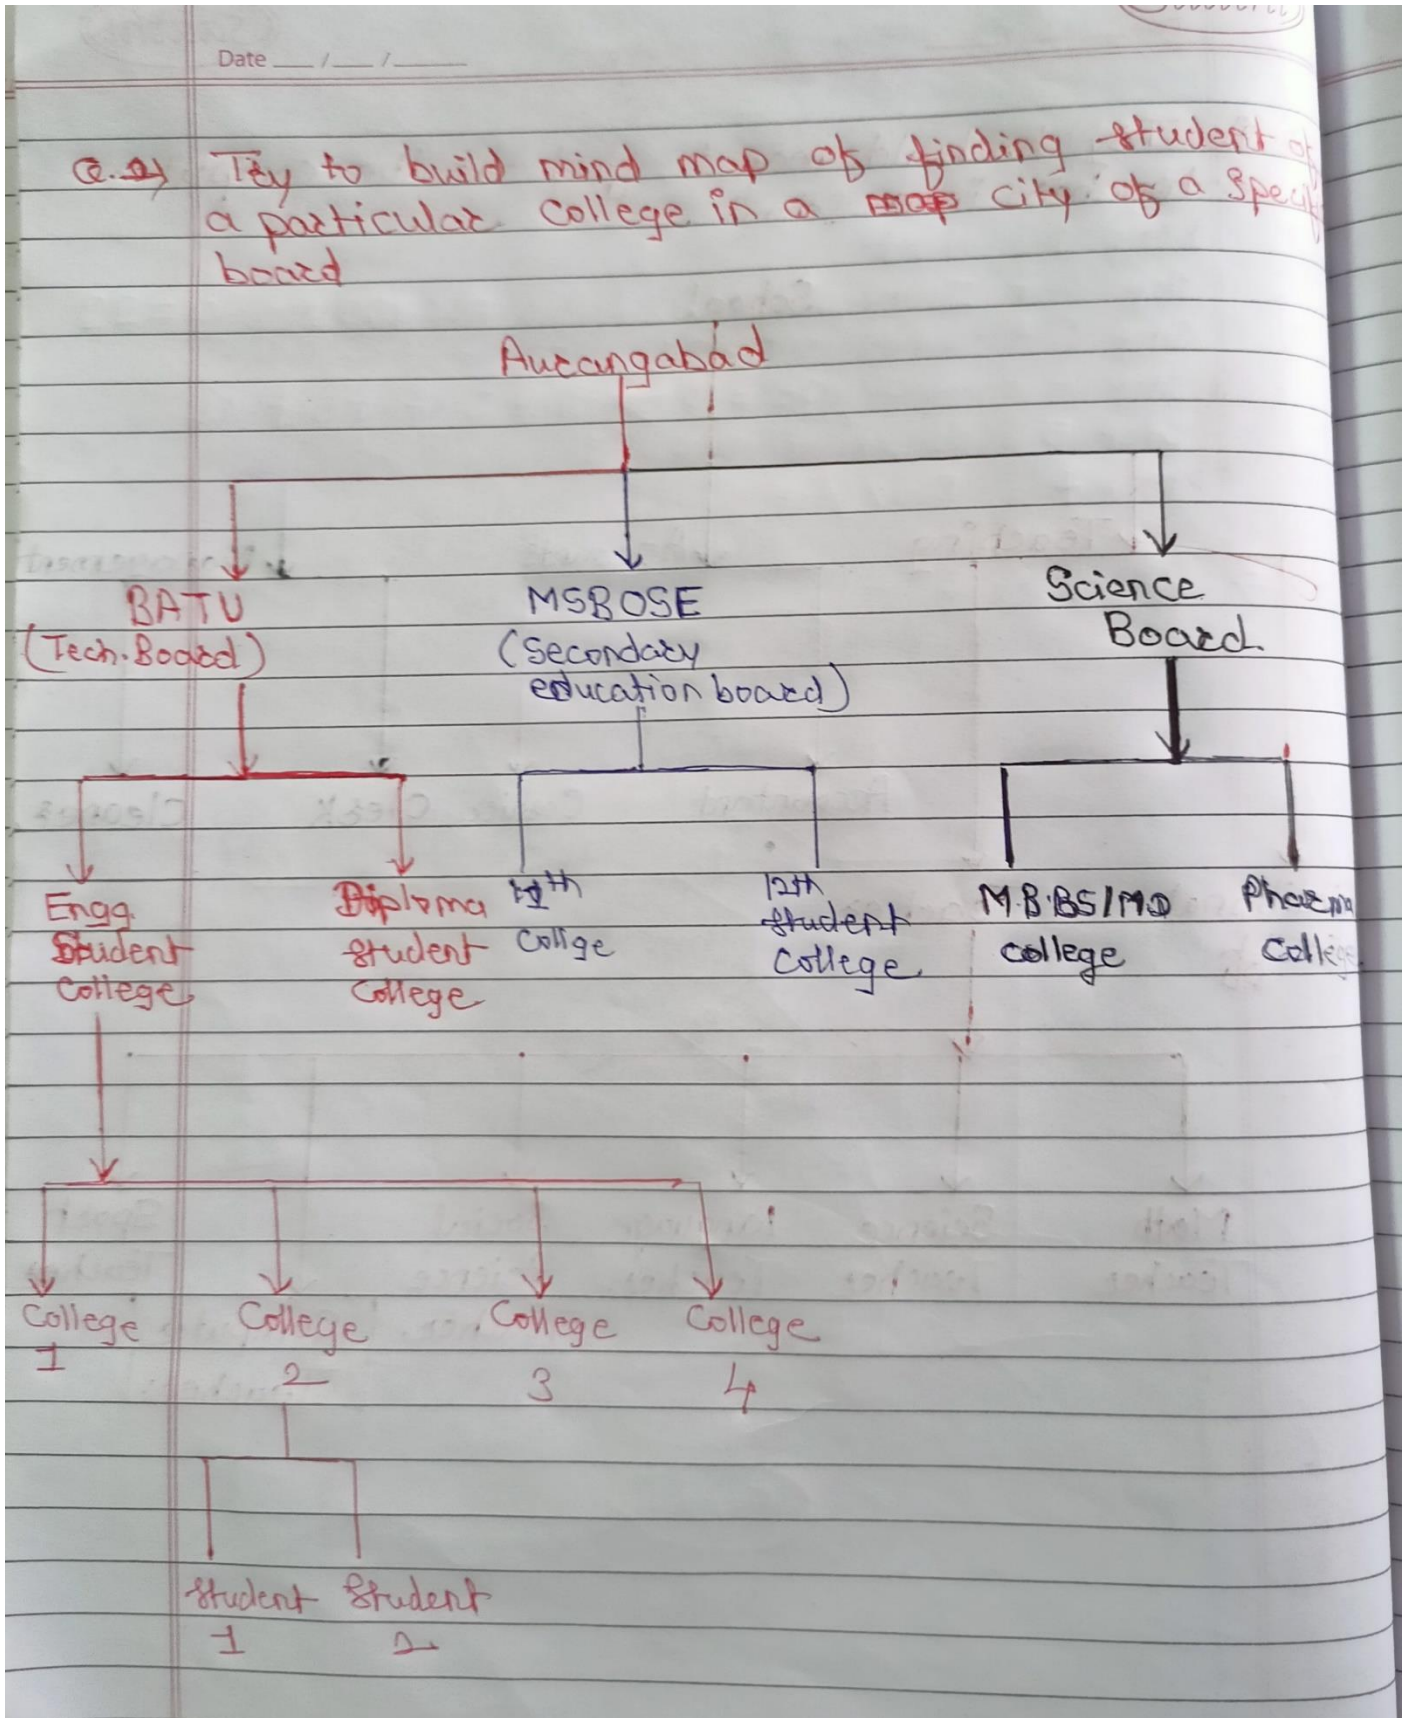 Date __/__/____
Q.2) Try to build mind map of finding student of
a particular college in a map city of a
board
Aurangabad
BATU
(Tech.Board)
MSBOSE
(Secondary
education board)
Science
Board.
Engg.
Student
College
Diploma
student
College
11th
Collge
12th
student
College
M.B.BS/MD
college
Pharma
College
College
1
College
2
College
3
College
4
Student
1
Student
2